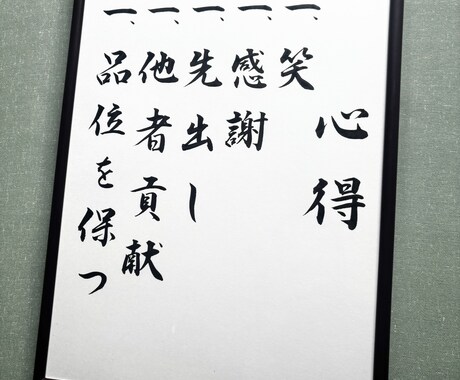 心得
一、笑
一、感謝
一、先出し
一、他者貢献
一、品位を保つ